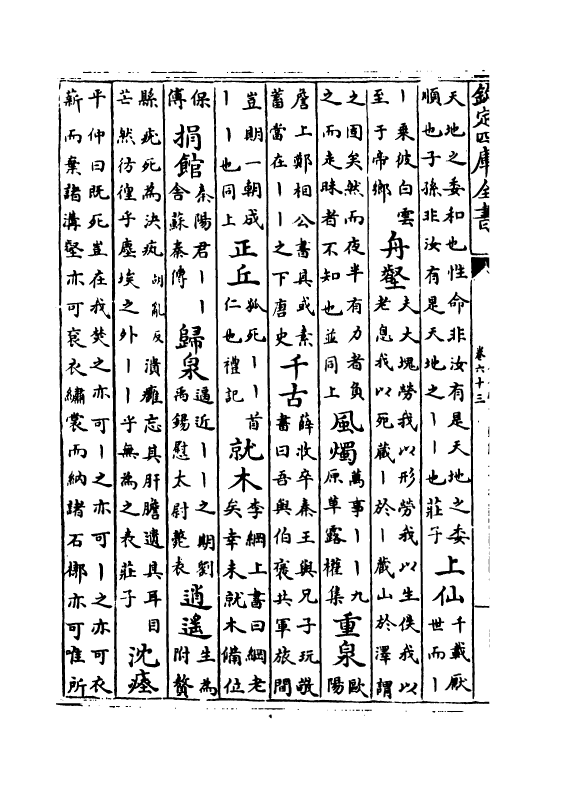 欽定四庫全書
卷六十三
天地之委和也性命非汝有是天地之委
順也子孫非汝有是天地之丨丨也莊子
上仙
千載厭
世而丨
丨乘彼白雲
至于帝鄉
舟壑
夫大塊勞我以形勞我以生俟我以
老息我以死藏丨於丨藏山於澤謂
之固矣然而夜半有力者負
之而走昧者不知也並同上
風燭
萬事丨丨九
原草露權集
重泉
歐
陽
詹上鄭相公書具或素
蓄當在丨丨之下唐史
千古
薛收卒秦王與兄子玩敬
書曰吾與伯褒共軍旅間
豈期一朝成
丨丨也同上
正丘
狐死丨丨首
仁也禮記
就木
李綱上書曰綱老
矣幸未就木備位
保
傅
捐館
秦陽君丨丨
舍蘇秦傳
歸泉
逼近丨丨之期劉
禹錫慰太尉薨表
逍遙
生為
附贅
縣疣死為決疣胡亂反潰癰忘其肝膽遺其耳目
芒然彷徨乎塵埃之外丨丨乎無為之表莊子
沈瘞
平仲曰既死豈在我焚之亦可丨之亦可丨之亦可衣
薪而棄諸溝壑亦可袞衣繡裳而納諸石槨亦可唯所